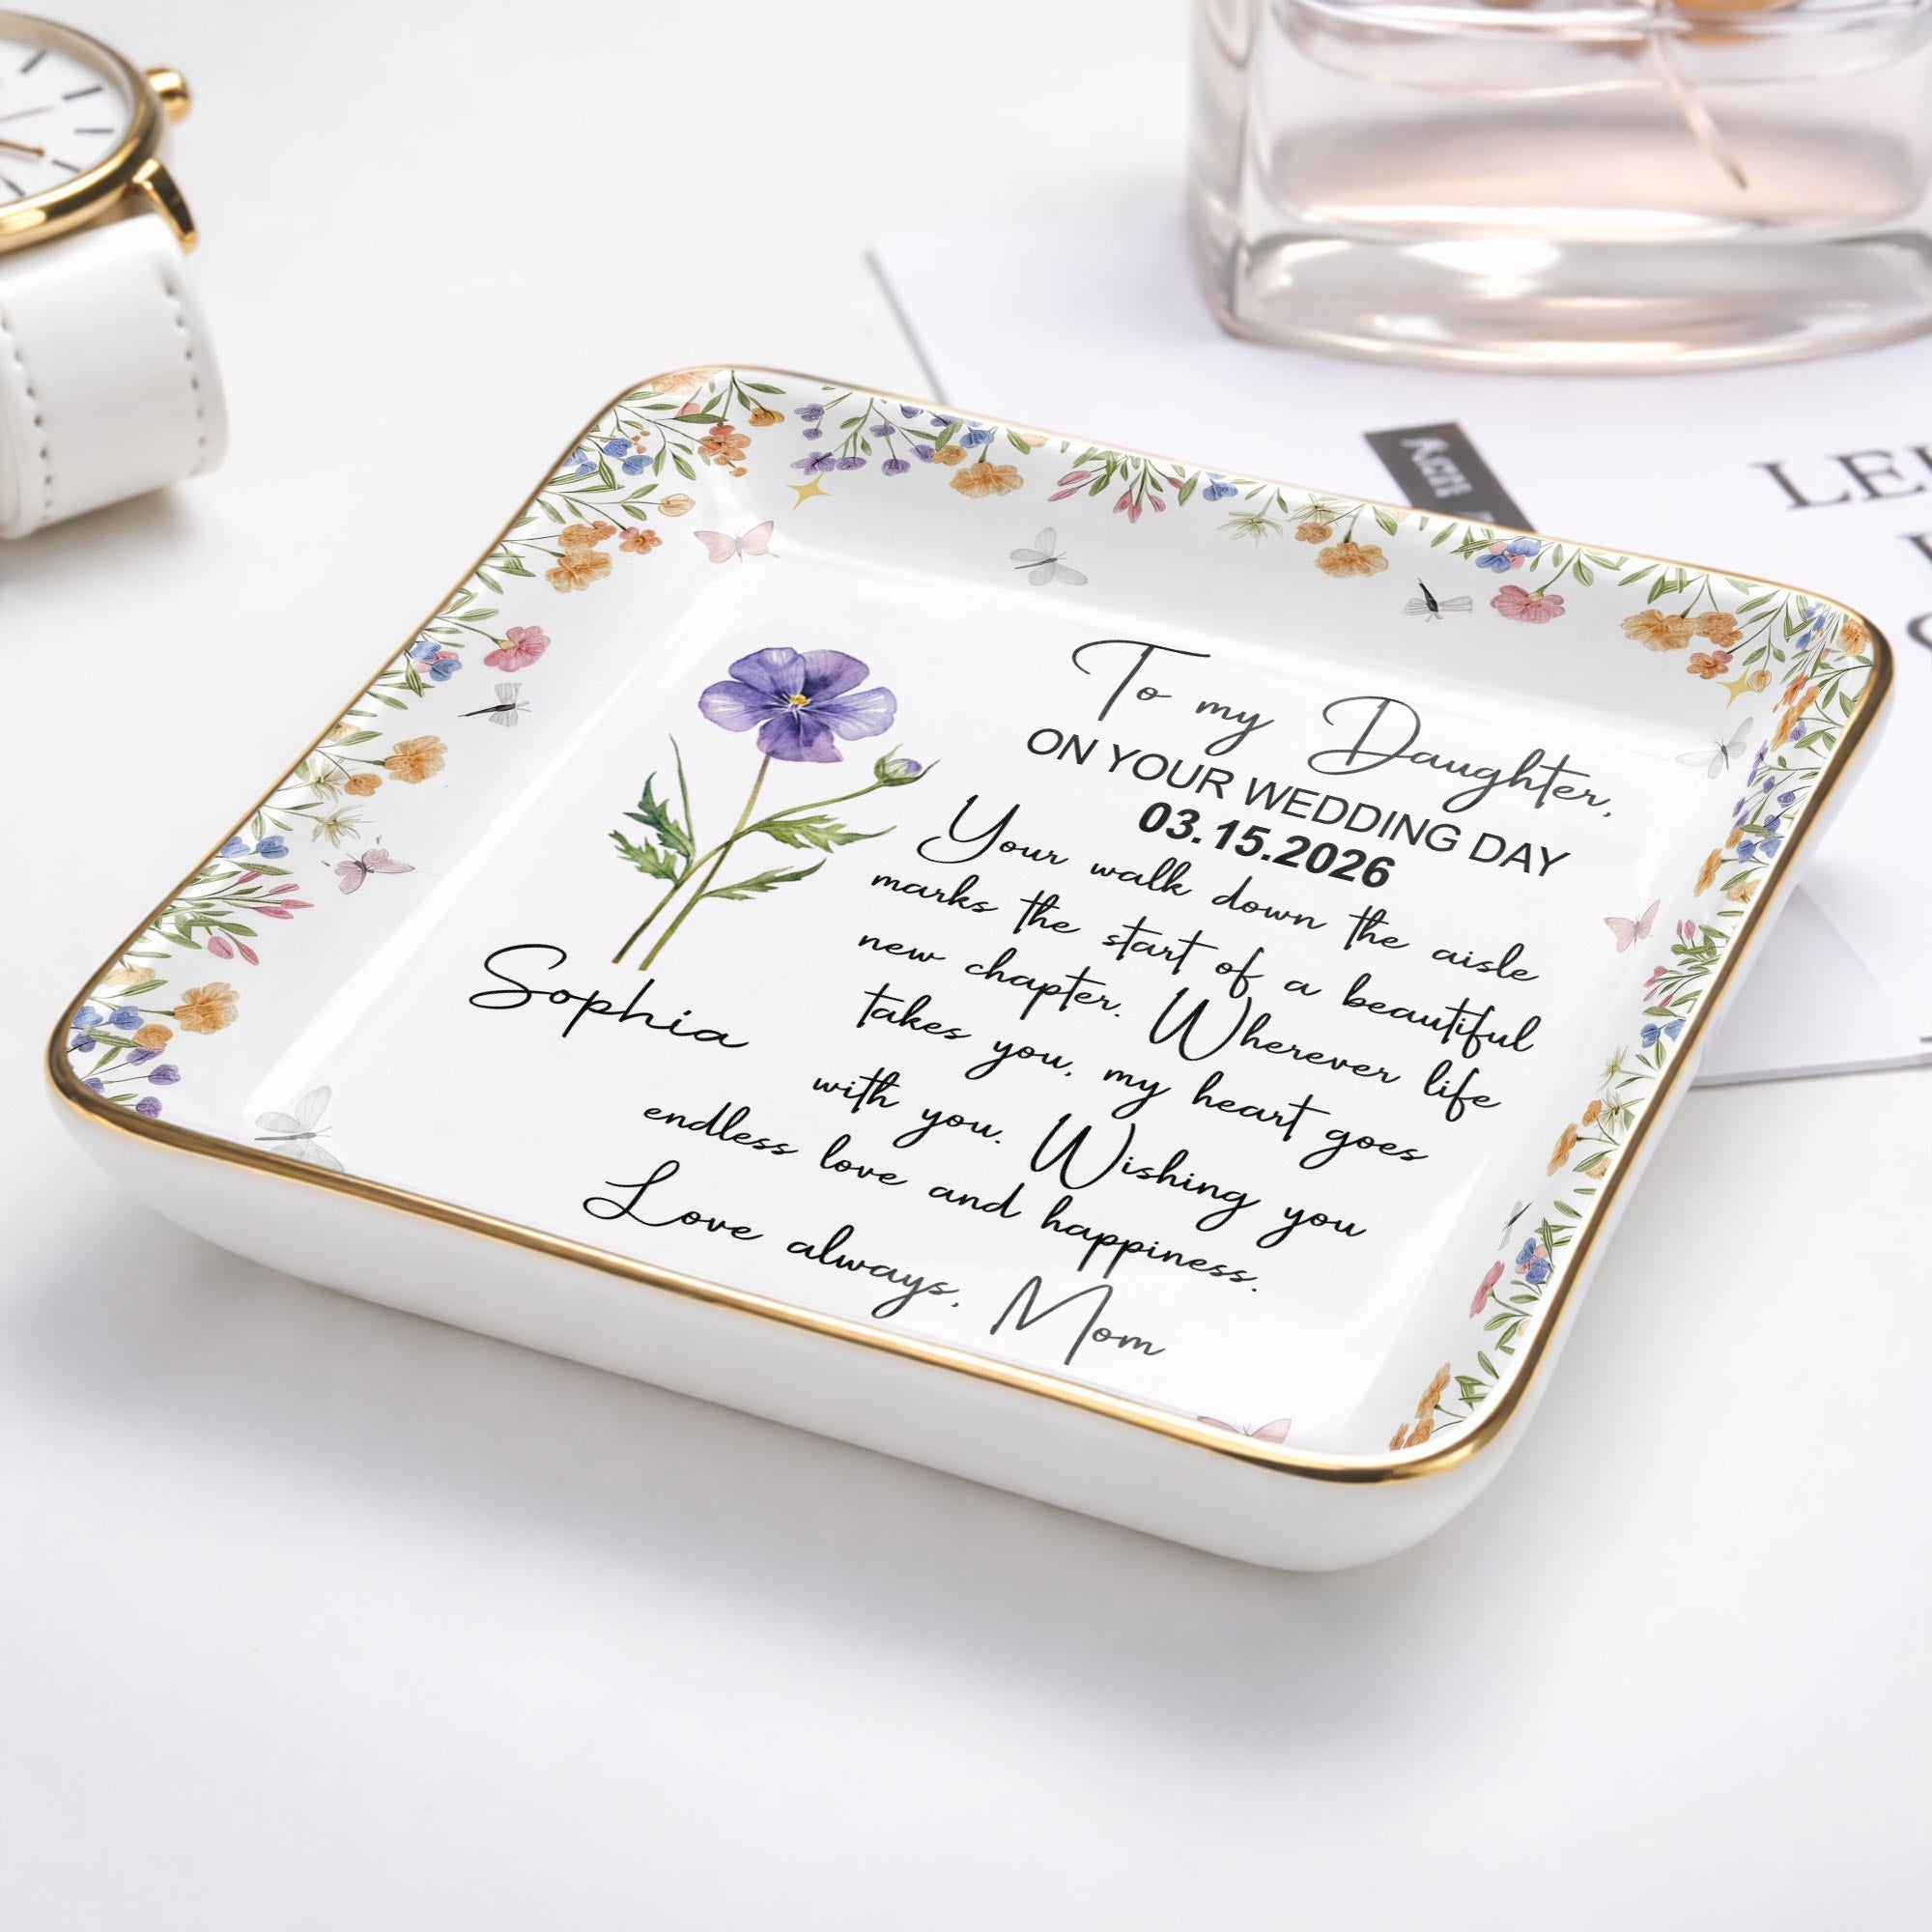 To my Daughter,
ON YOUR WEDDING DAY
03.15.2026
Your walk down the aisle
marks the start of a beautiful
new chapter. Wherever life
takes you, my heart goes
with you. Wishing you
endless love and happiness.
Love always, Mom
Sophia